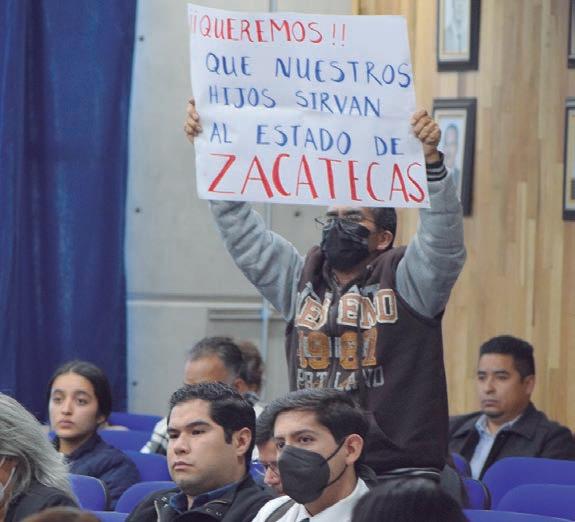 ¡¡QUEREMOS!!
QUE NUESTROS
HIJOS SIRVAN
AL ESTADO DE
ZACATECAS
1987